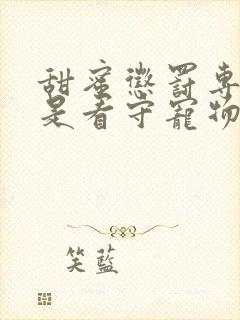 甜蜜懲罰專
是看守寵物
笑藍